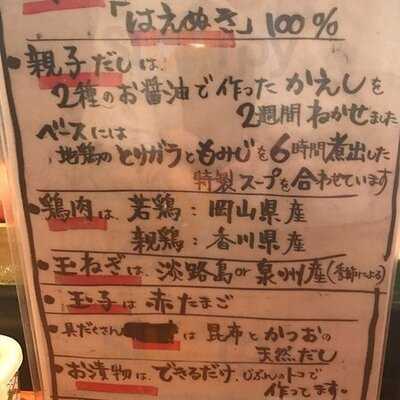 「はえぬき」100%
・親子だしは、
2種のお醤油で作ったかえしを
2週間ねかせました
ベースには
地鶏のとりガラともみじを6時間煮出した
特製スープを合わせています
・鶏肉は、若鶏:岡山県産
親鶏:香川県産
・玉ねぎは、淡路島or泉州産(季節による)
・玉子は赤たまご
・具だくさん は昆布とかつおの
天然だし
・お漬物は、できるだけ、じぶんのトコで
作ってます。